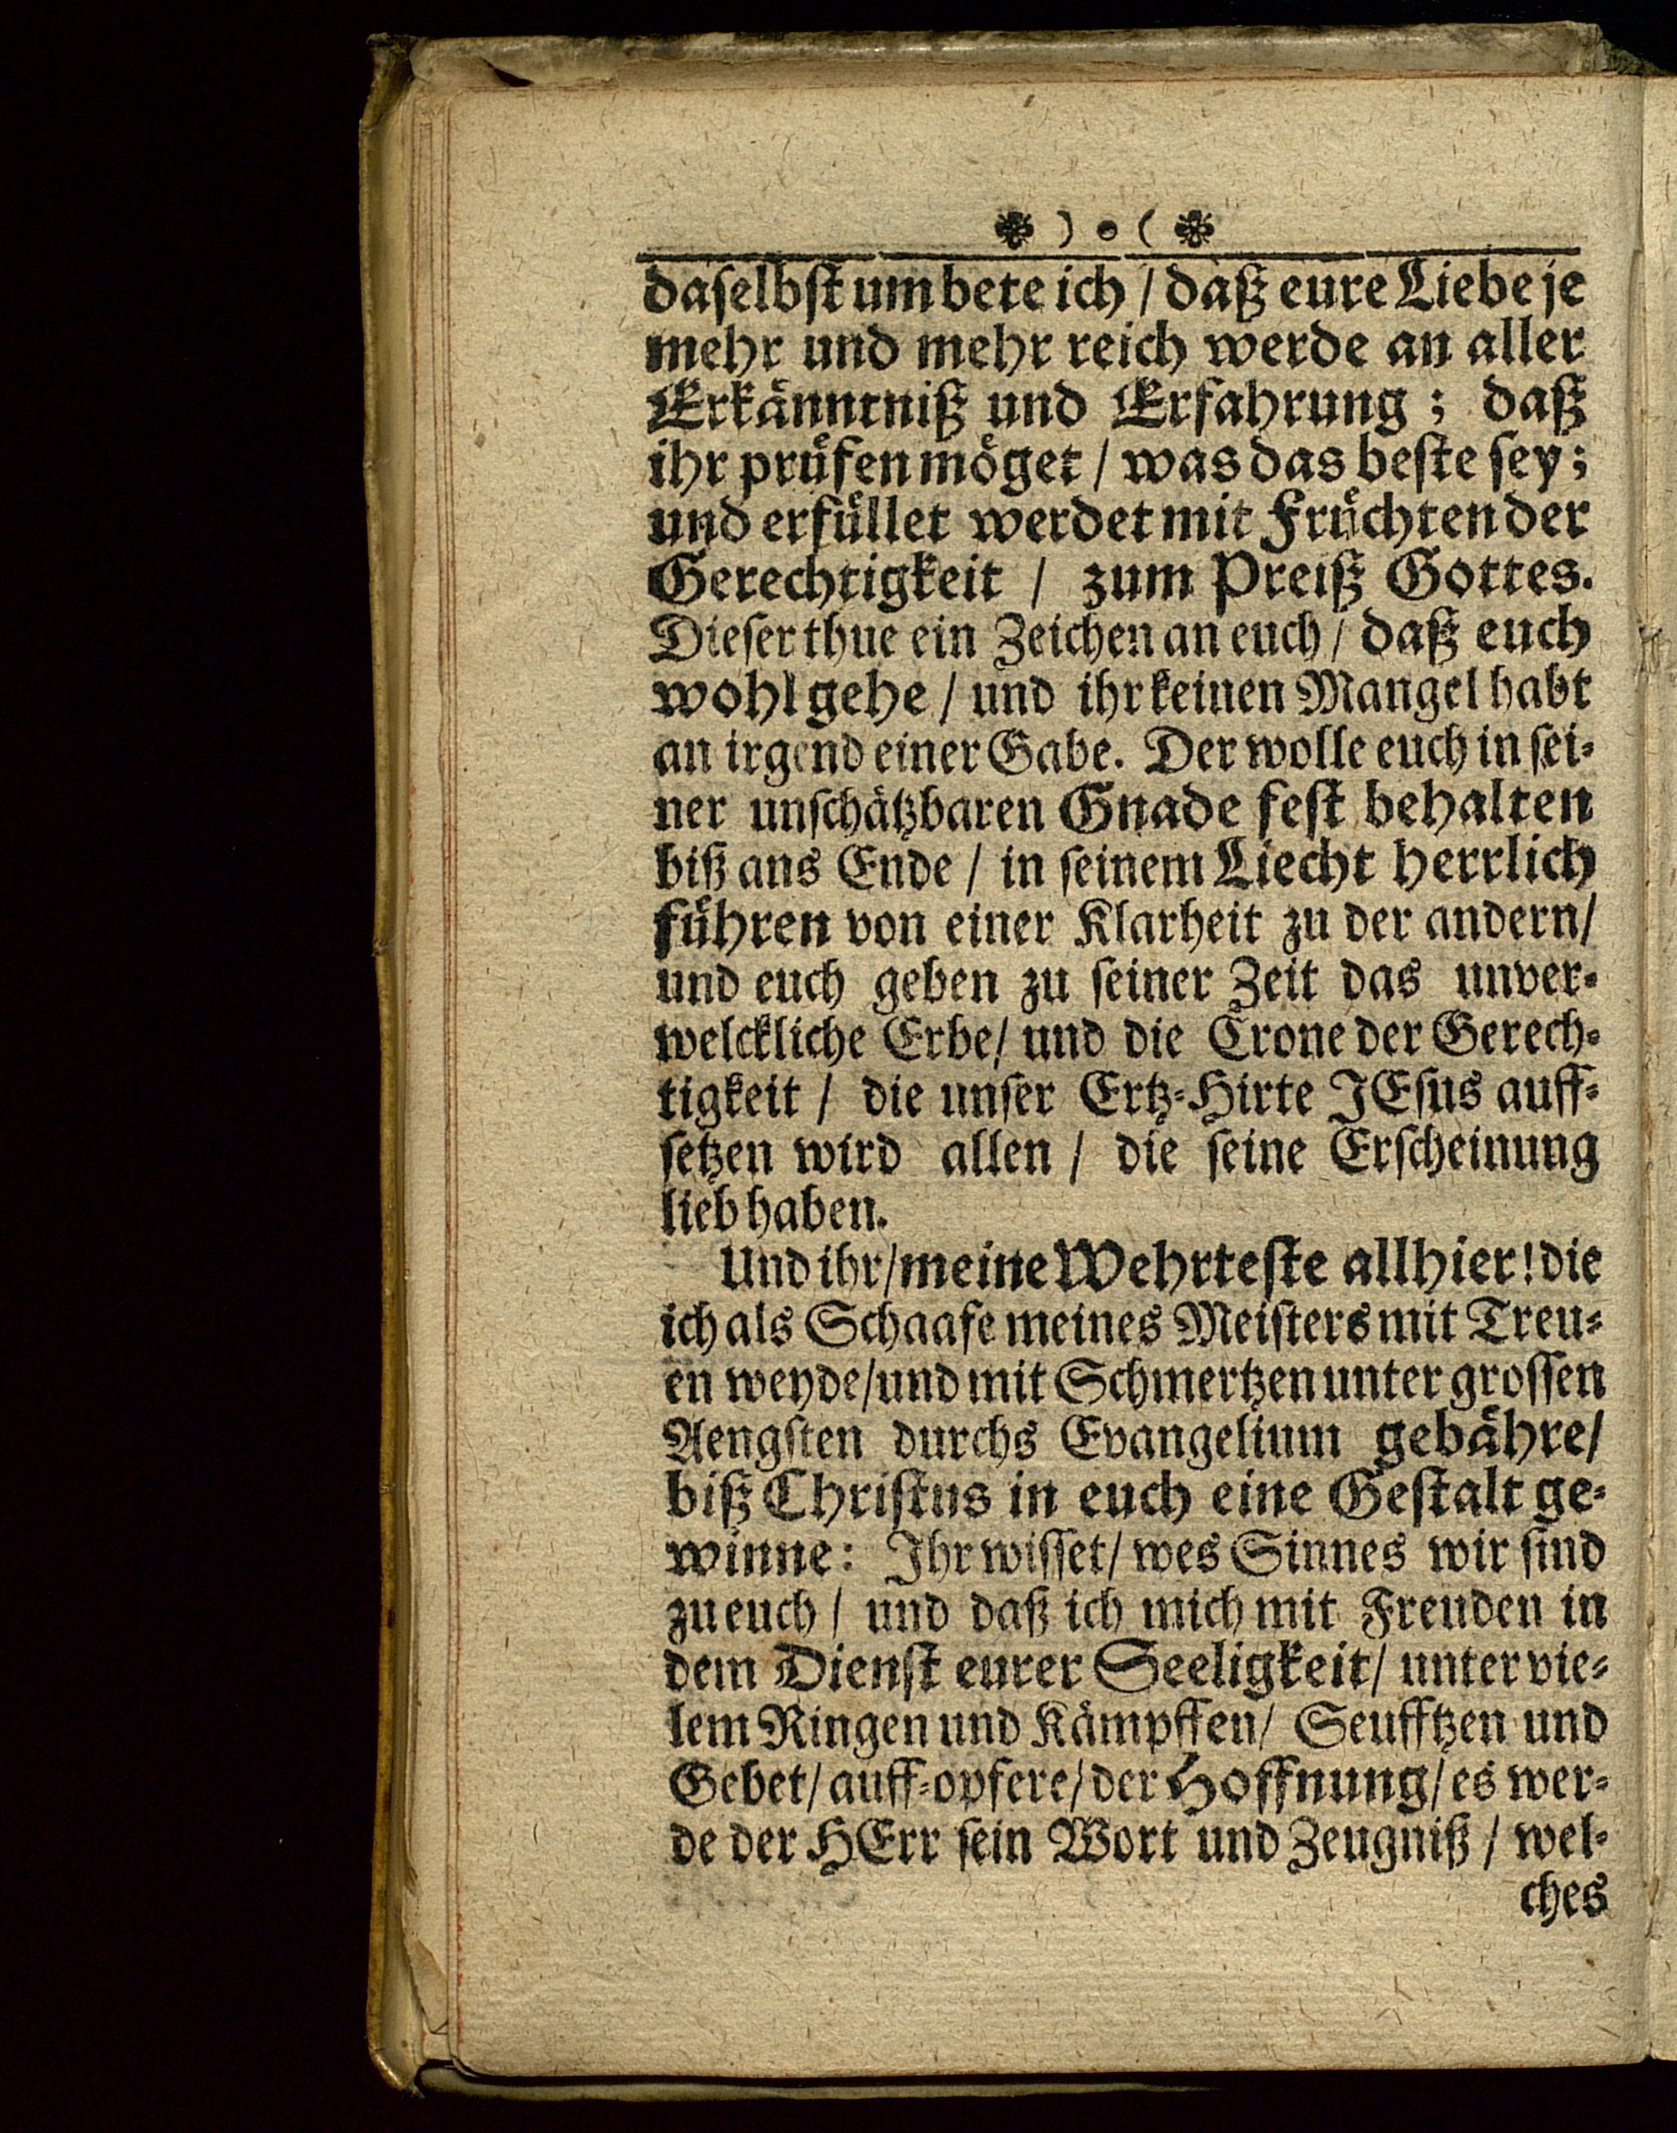 ❀ ) o ( ❀
daselbst um bete ich / daß eure Liebe je
mehr und mehr reich werde an aller
Erkänntniß und Erfahrung; daß
ihr prüfen möget / was das beste sey;
und erfüllet werdet mit Früchten der
Gerechtigkeit / zum Preiß Gottes.
Dieser thue ein Zeichen an euch / daß euch
wohl gehe / und ihr keinen Mangel habt
an irgend einer Gabe. Der wolle euch in sei-
ner unschätzbaren Gnade fest behalten
biß ans Ende / in seinem Liecht herrlich
führen von einer Klarheit zu der andern /
und euch geben zu seiner Zeit das unver-
welckliche Erbe / und die Crone der Gerech-
tigkeit / die unser Ertz-Hirte JEsus auff-
setzen wird allen / die seine Erscheinung
lieb haben.
Und ihr / meine Wehrteste allhier! die
ich als Schaafe meines Meisters mit Treu-
en weyde / und mit Schmertzen unter grossen
Aengsten durchs Evangelium gebähre /
biß Christus in euch eine Gestalt ge-
winne: Ihr wisset / wes Sinnes wir sind
zu euch / und daß ich mich mit Freuden in
dem Dienst eurer Seeligkeit / unter vie-
lem Ringen und Kämpffen / Seufftzen und
Gebet / auff-opfere / der Hoffnung / es wer-
de der HErr sein Wort und Zeugniß / wel-
ches